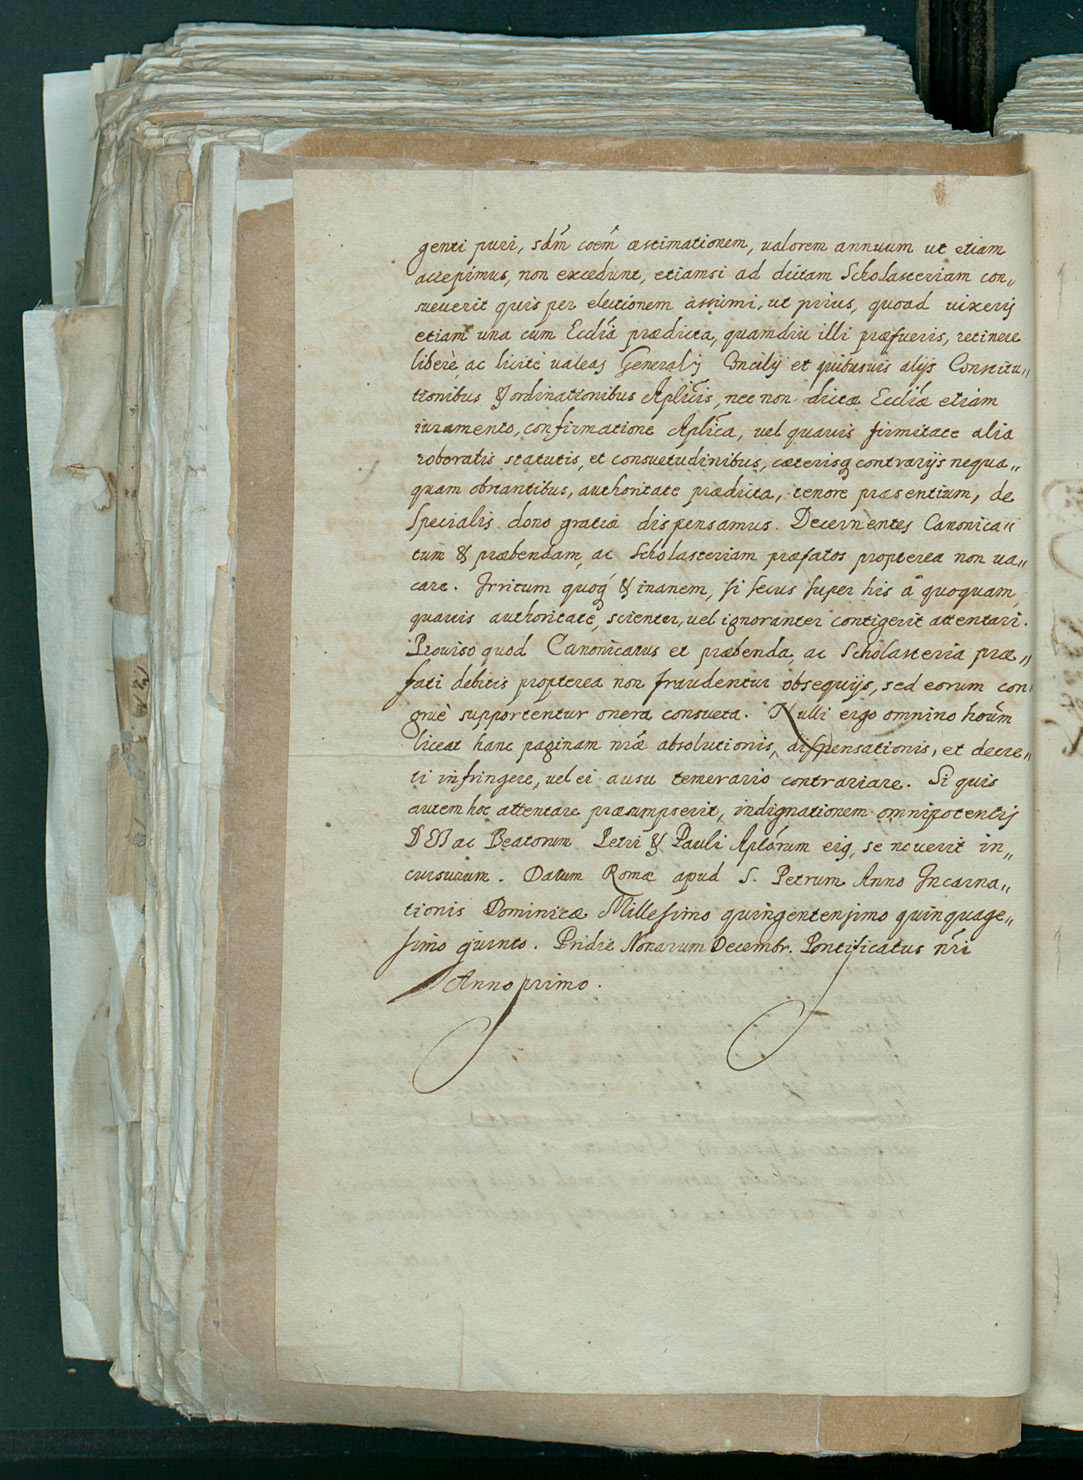 genti puri, sdm̃ coem̃ æstimationem, valorem annuum ut etiam
accepimus, non excedunt, etiamsi ad dictam Scholasteriam con„
sueuerit quis per electionem assumi, ut prius, quoad vixeris
etiam una cum Ecclia prædicta, quamdiu illi præfueris, retinere
liberè, ac licitè valeas Generalis Concilij et quibusuis alijs Constitu„
tionibus & ordinationibus Aplicis, nec non dictæ Eccliæ etiam
iuramento, confirmatione Aplica, vel quauis firmitate alia
roboratis statutis, et consuetudinibus, cæterisq contrarijs nequa„
quam obstantibus, authoritate prædicta, tenore præsentium, de
specialis dono gratiæ dispensamus. Decernentes Canonica„
tum & præbendam, ac Scholasteriam præfatos propterea non va„
care. Irritum quoq & inanem, si secus super his à quoquam,
quauis authoritate, scienter, vel ignoranter contigerit attentari.
Prouiso quod Canonicatus et præbenda, ac Scholasteria præ„
fati debitis propterea non fraudentur obsequijs, sed eorum con
gruè supportentur onera consueta. Nulli ergo omnino houm̃
liceat hanc paginam nr̃æ absolutionis, dispensationis, et decre„
ti infringere, vel ei ausu temerario contrariare. Si quis
autem hoc attentare præsumpserit, indignationem omnipotentis
DEI ac Beatorum Petri & Pauli Aplorum eius, se nouerit in„
cursurum. Datum Romæ apud S. Petrum Anno Incarna„
tionis Dominicæ Millesimo quingentensimo quinquage„
simo quinto. Pridie Nonarum Decembr. Pontificatus nr̃i
Anno primo.